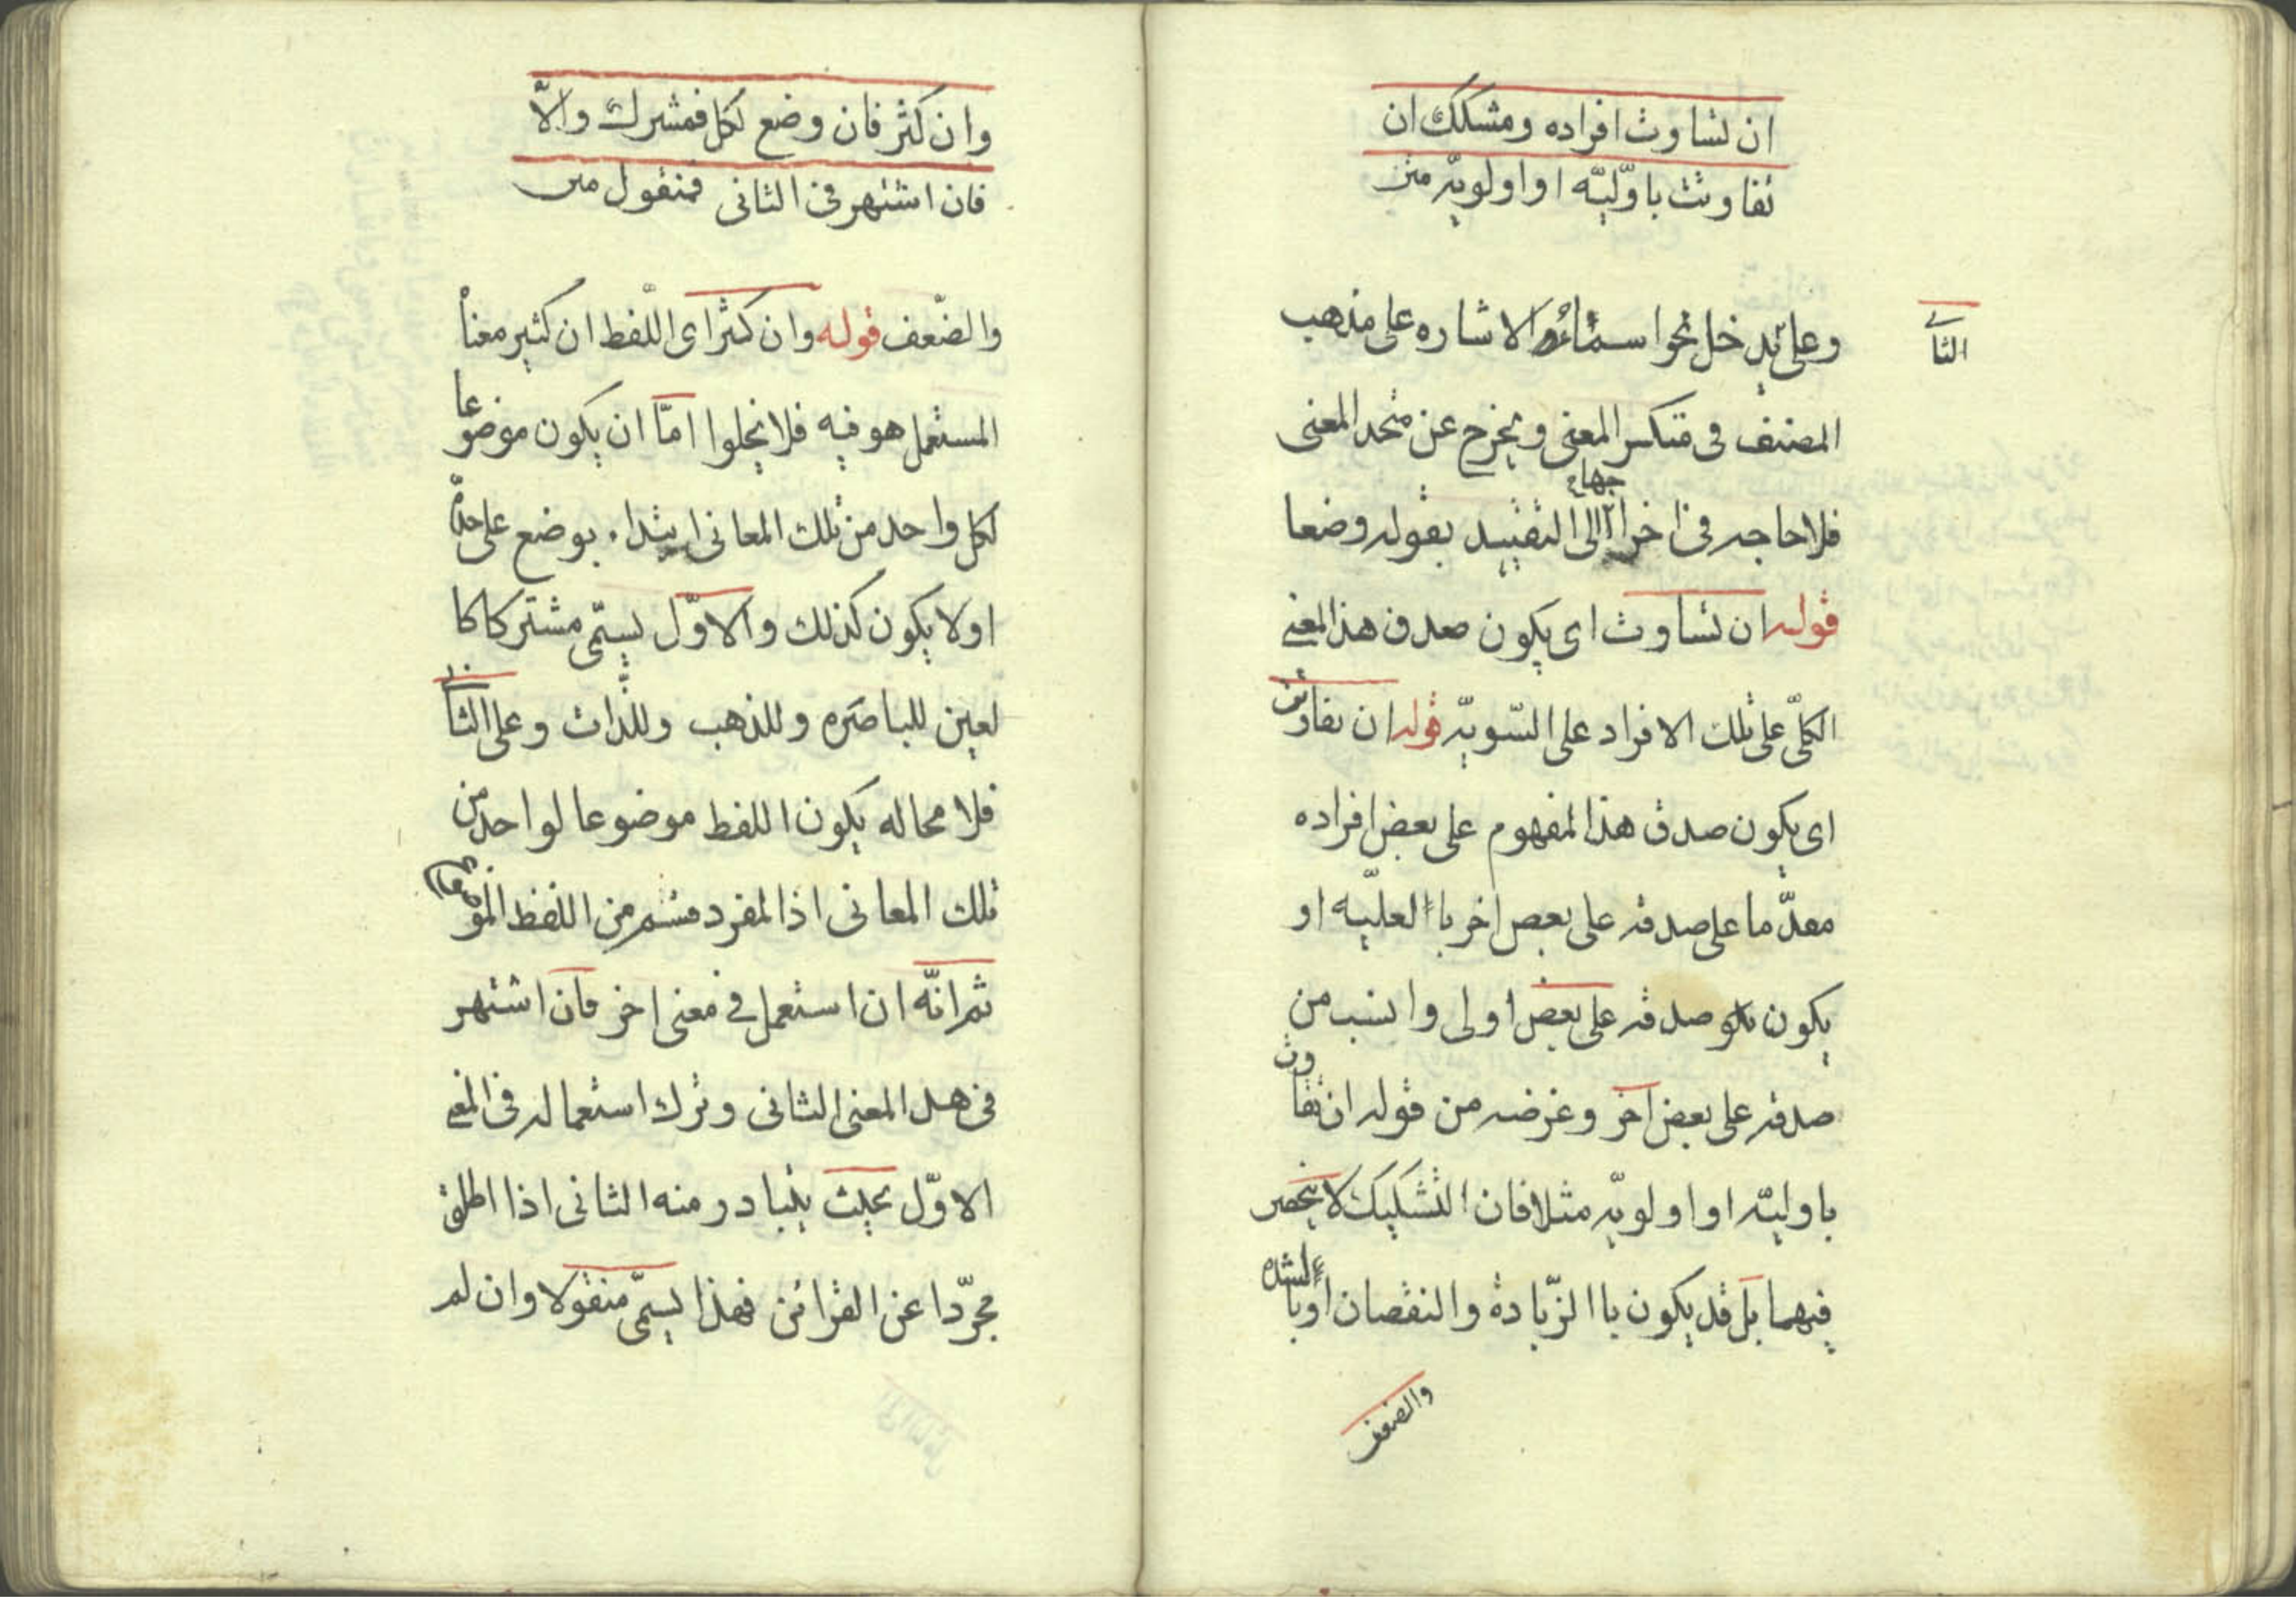 ان تساوت افراده ومشكك ان
تفاوتت باوّليّه او اولويّه متن
الثا
وعلى يدخل نحو اسمائه الاشاره على مذهب
المصنف فى متكسر المعنى ويخرج عن متحد المعنى
فلا حاجه فى اخراجها الى التقييد بقوله وضعا
قوله ان تساوت اى يكون صدق هذا المعنى
الكلّى على تلك الافراد على السّويّه قوله ان تفاوتت
اى يكون صدق هذا المفهوم على بعض افراده
مقدّما على صدقه على بعض اخر باالعليّه او
يكون صدقه على بعض اولى وانسب من
صدقه على بعض اخر وغرضه من قوله ان تفاوت
باوليّه او اولويّه مثلا فان التشكيك لا ينحصر
فيهما بل قد يكون باالزّيادة والنقصان او باالشده
والضعف
وان كثر فان وضع لكل فمشرك والّا
فان اشتهر فى الثانى فمنقول متن
والضّعف قوله وان كثر اى اللّفظ ان كثير معناً
المستعمل هو فيه فلا يخلوا امّا ان يكون موضوعا
لكل واحد من تلك المعانى ابتداء بوضع على حدة
اولا يكون كذلك والاوّل يسمّى مشتركا كا
لعين للباصره وللذهب وللذّات وعلى الثانى
فلا محاله يكون اللفظ موضوعا لواحد من
تلك المعانى اذ المفرد قسم من اللفظ الموضوع
ثم انّه ان استعمل فى معنى اخر فان اشتهر
فى هذ المعنى الثانى وترك استعماله فى المعنى
الاوّل بحيث يتبادر منه الثانى اذا اطلق
مجرّدا عن القرائن فهذا يسمّى منقولا وان لم